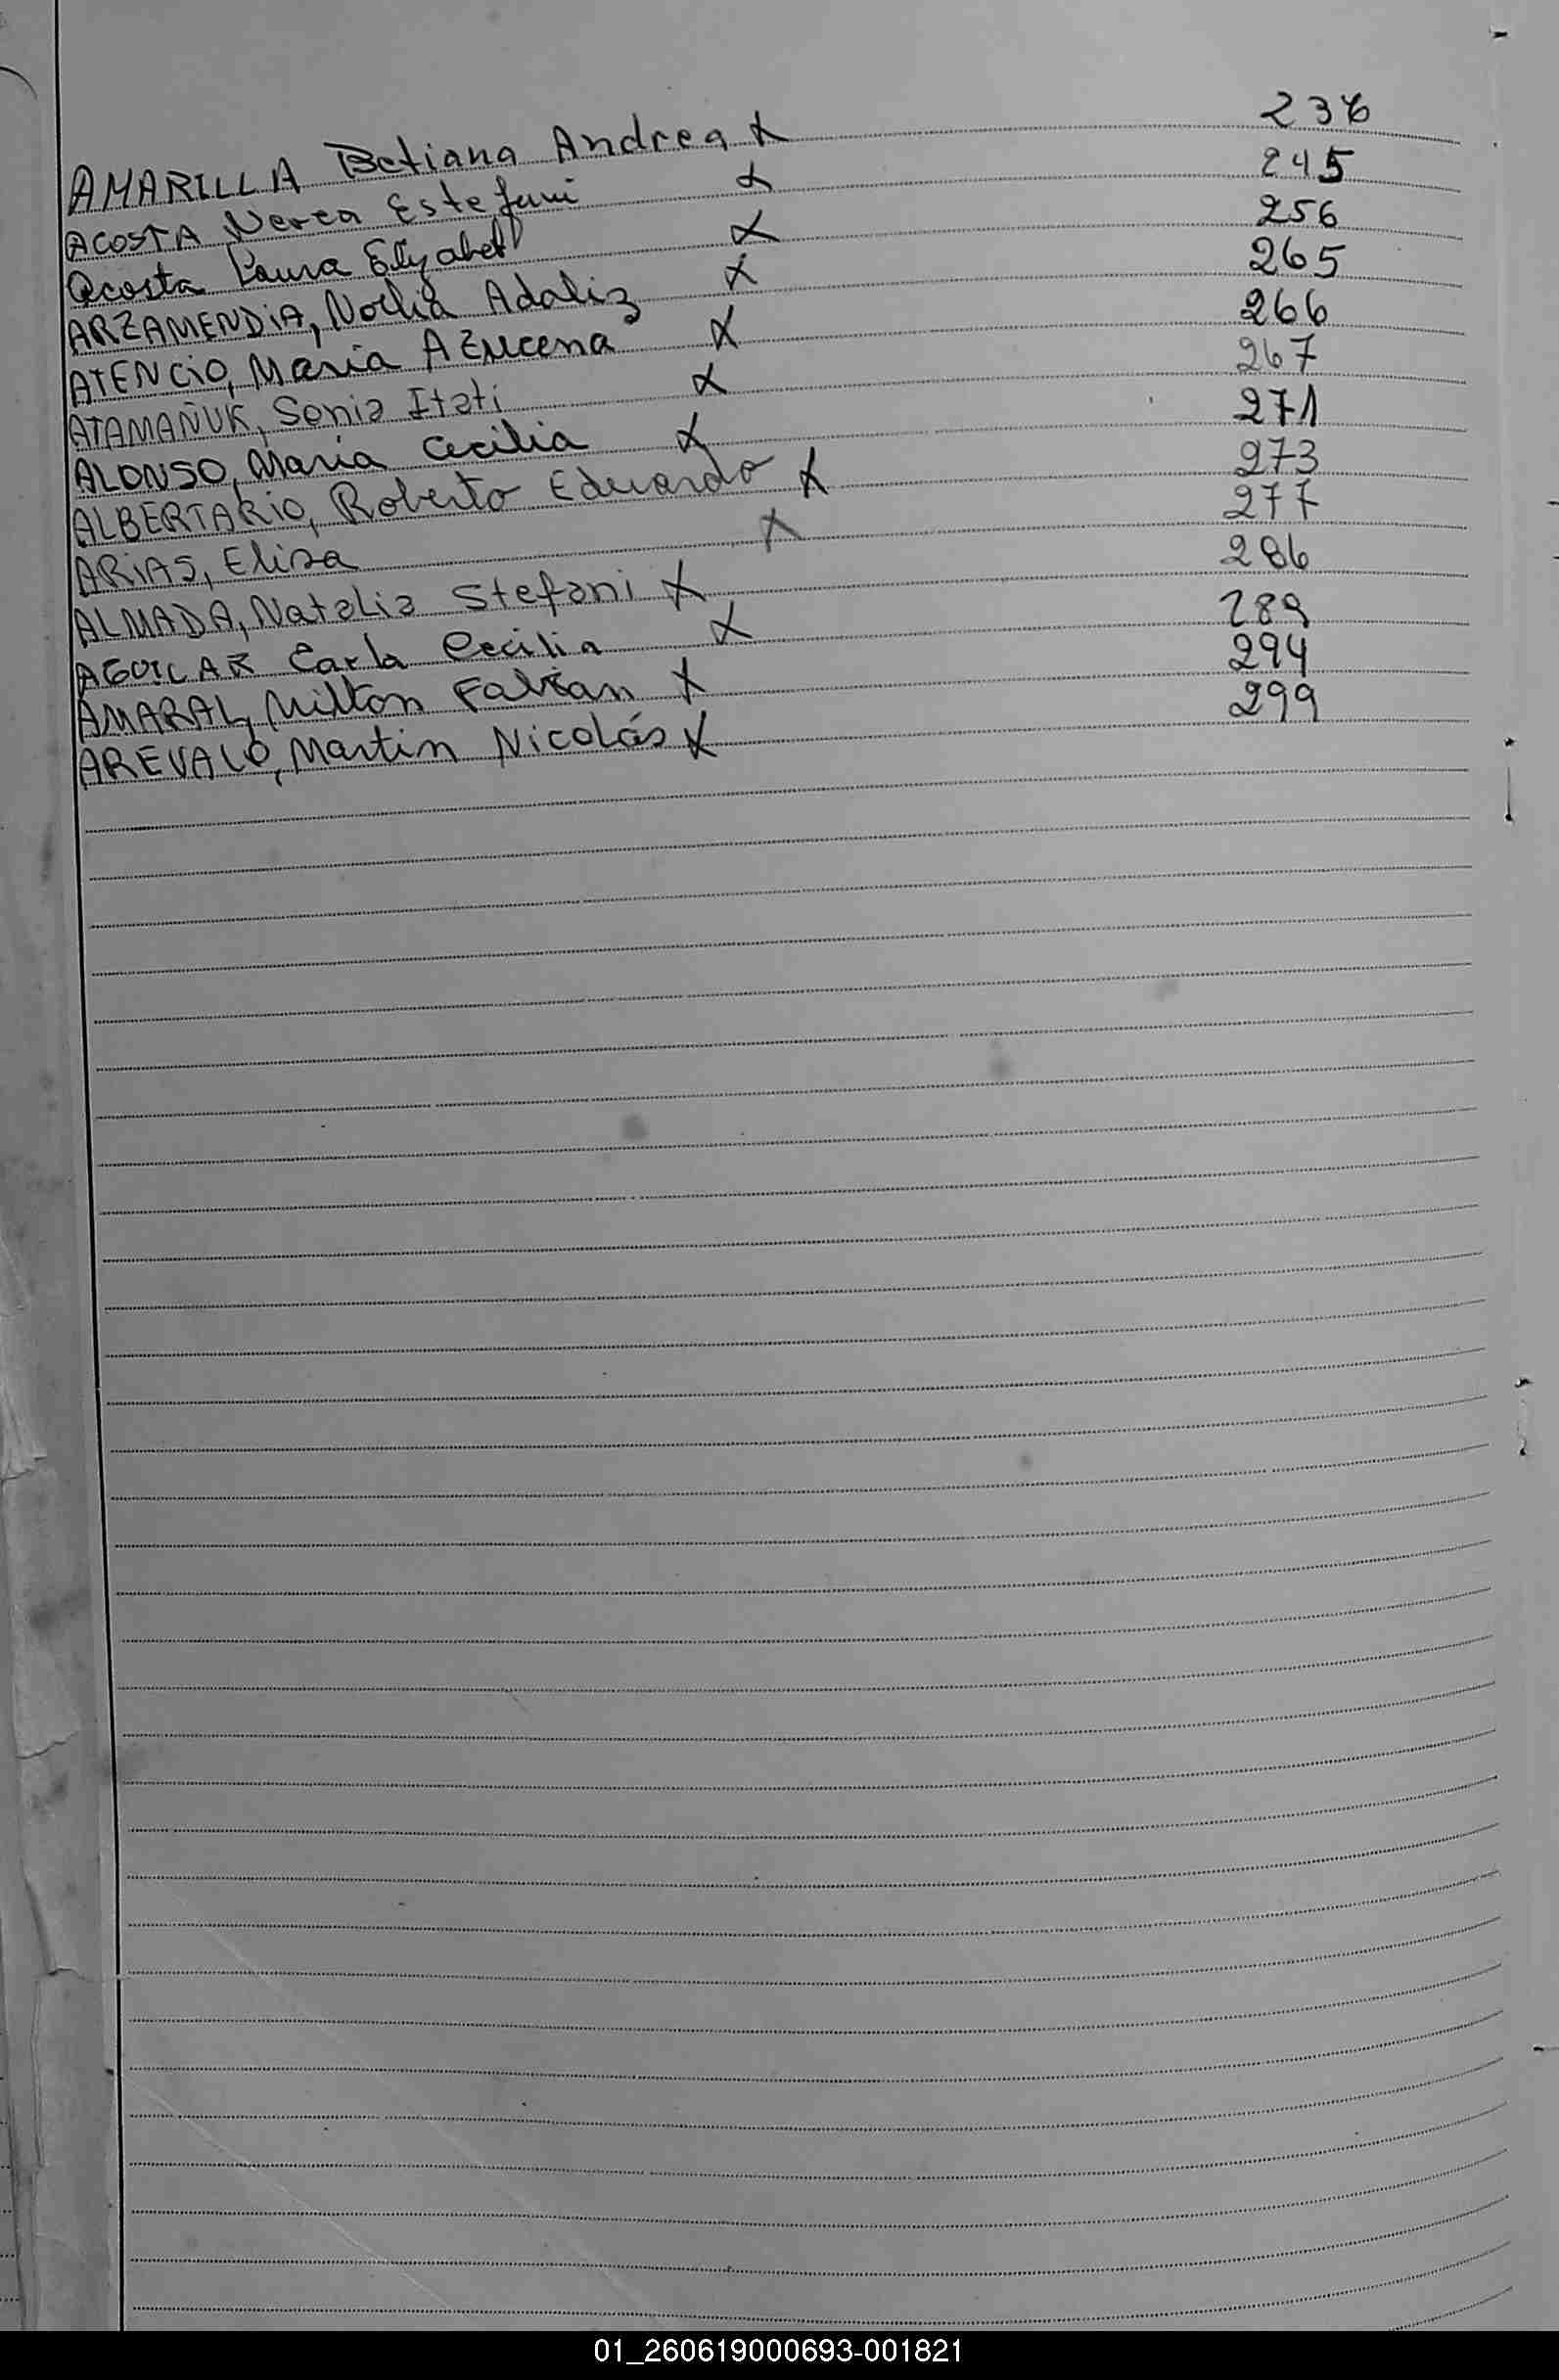 AMARILLA Betiana Andrea X 236
ACOSTA Nerea Estefani X 245
Acosta Laura Elyzabet X 256
ARZAMENDIA, Noelia Adaliz X 265
ATENCIO, María Azucena X 266
ATAMAÑUK, Sonia Itatí X 267
ALONSO, María Cecilia X 271
ALBERTARIO, Roberto Eduardo X 273
ARIAS, Elisa X 277
ALMADA, Natalia Stefani X 286
AGUILAR Carla Cecilia X 289
AMARAL, Milton Fabian X 294
AREVALO, Martin Nicolás X 299
01_260619000693-001821